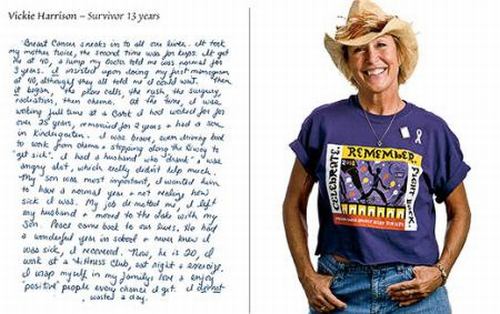 Vickie Harrison – Survivor 13 years
"Breast Cancer sneaks in to all our lives. It took
my mother twice, the second time was for keeps. It got
me at 40, a lump my doctor told me was normal for
3 years. I insisted upon doing my first mammogram
at 40, although they all told me I could wait. Then
it began, the phone calls, the rush, the surgery,
radiation, then chemo. At the time, I was
working full time at a I had worked for for
over 25 years, remarried for 2 years & had a son
in Kindergarten. I was brave, even driving back
to work from chemo & stopping along the to
"get sick". I had a husband who drank & was
angry alot, which really didn't help much.
My son was most important, I wanted him
to have a normal year & not realize how
sick I was. My job me, I left
my husband & moved to the with my
son. Peace came back to our lives. He had
a wonderful year in school & never knew I
was sick, I recovered. Now, he is 20, I
work at a Fitness Club, eat right & exercise.
I wrap myself in my family's love & enjoy
"positive" people every chance I get. I do not
waste a day.
CELEBRATE. REMEMBER. FIGHT BACK.